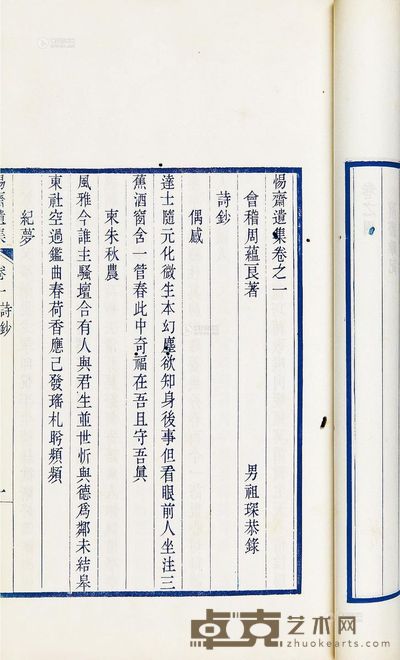 惕齋遺集卷之一
會稽周蘊良著　男祖琛恭錄
詩鈔
偶感
達士隨元化微生本幻塵欲知身後事但看眼前人坐注三
蕉酒窗含一管春此中奇福在吾且守吾眞
柬朱秋農
風雅今誰主騷壇合有人與君生並世忻與德爲鄰未結皋
東社空過鑑曲春荷香應已發瑤札盼頻頻
紀夢
惕齋遺集
卷一詩鈔
一
卓克艺术网
zhuokearts.com